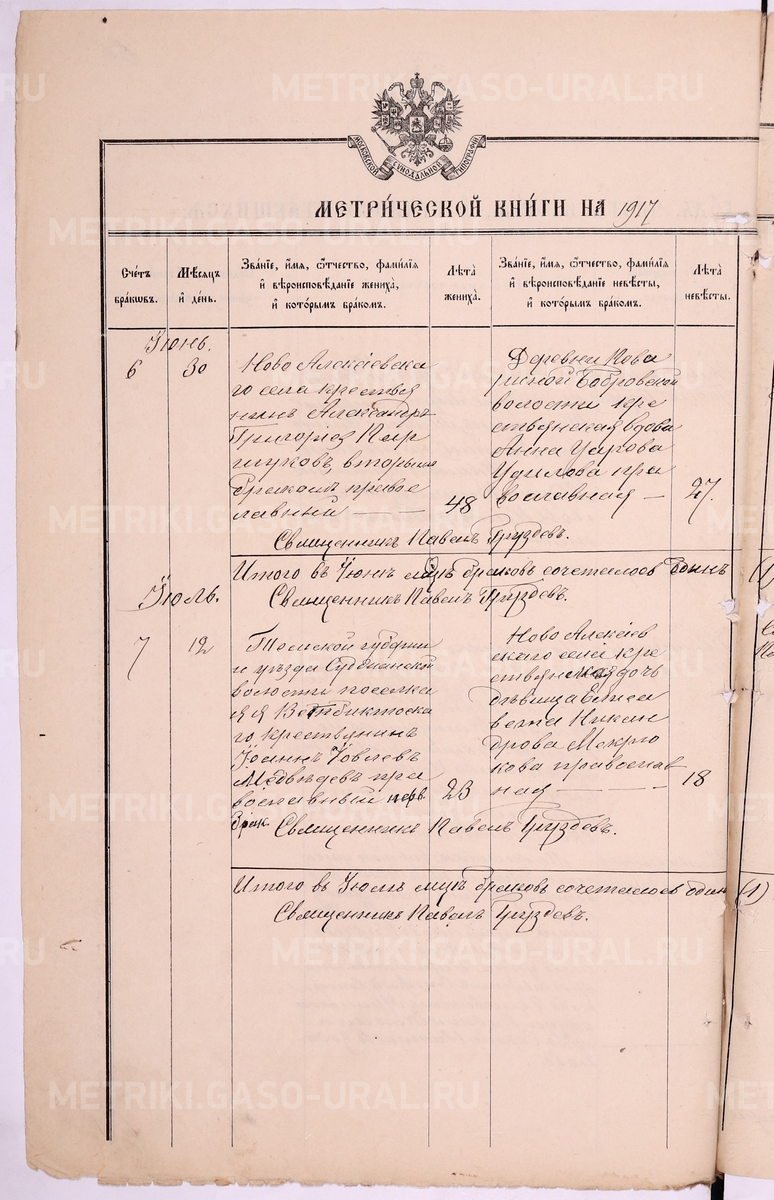 МОСКОВСКОЙ СѴНОДАЛЬНОЙ ТИПОГРАФІИ
МЕТРИ́ЧЕСКОЙ КНИ́ГИ НА 1917
Сче́тъ бра́кѡвъ.
Мѣ́сяцъ и҆ де́нь.
Зва́нїе, и҆́мя, ѻ҆́тчество, фами́лїя и҆ вѣроисповѣ́данїе жениха̀, и҆ кото́рымъ бра́комъ.
Лѣ́та жениха̀.
Зва́нїе, и҆́мя, ѻ҆́тчество, фами́лїя и҆ вѣроисповѣ́данїе невѣ́сты, и҆ кото́рымъ бра́комъ.
Лѣ́та невѣ́сты.
Іюнь.
6
30
Ново Алексіевска
го села крестья
нинъ Александръ
Григоріев
шуковъ, вторымъ
бракомъ правос
лавный
48
Деревни
Бобровской
волости кре
стьянская вдова
Анна
пра
вославная —
27.
Священникъ Павелъ Груздевъ.
Итого въ Іюнѣ мцѣ браковъ сочеталось одинъ (1)
Священникъ Павелъ Груздевъ.
Іюль.
7
12
Томской губерніи
и уѣзда Судженской
волости поселка
го крестьянинъ
Іоаннъ Іовлевъ
Медвѣдевъ пра
вославный перв.
брак.
23
Ново Алексіев
скаго села кре
стьянская дочь
дѣвица Елиса
вета Никан
дрова Мокро
кова православ
ная —
18
Священникъ Павелъ Груздевъ.
Итого въ Іюлѣ мцѣ браковъ сочеталось одинъ (1)
Священникъ Павелъ Груздевъ.
METRIKI.GASO-URAL.RU